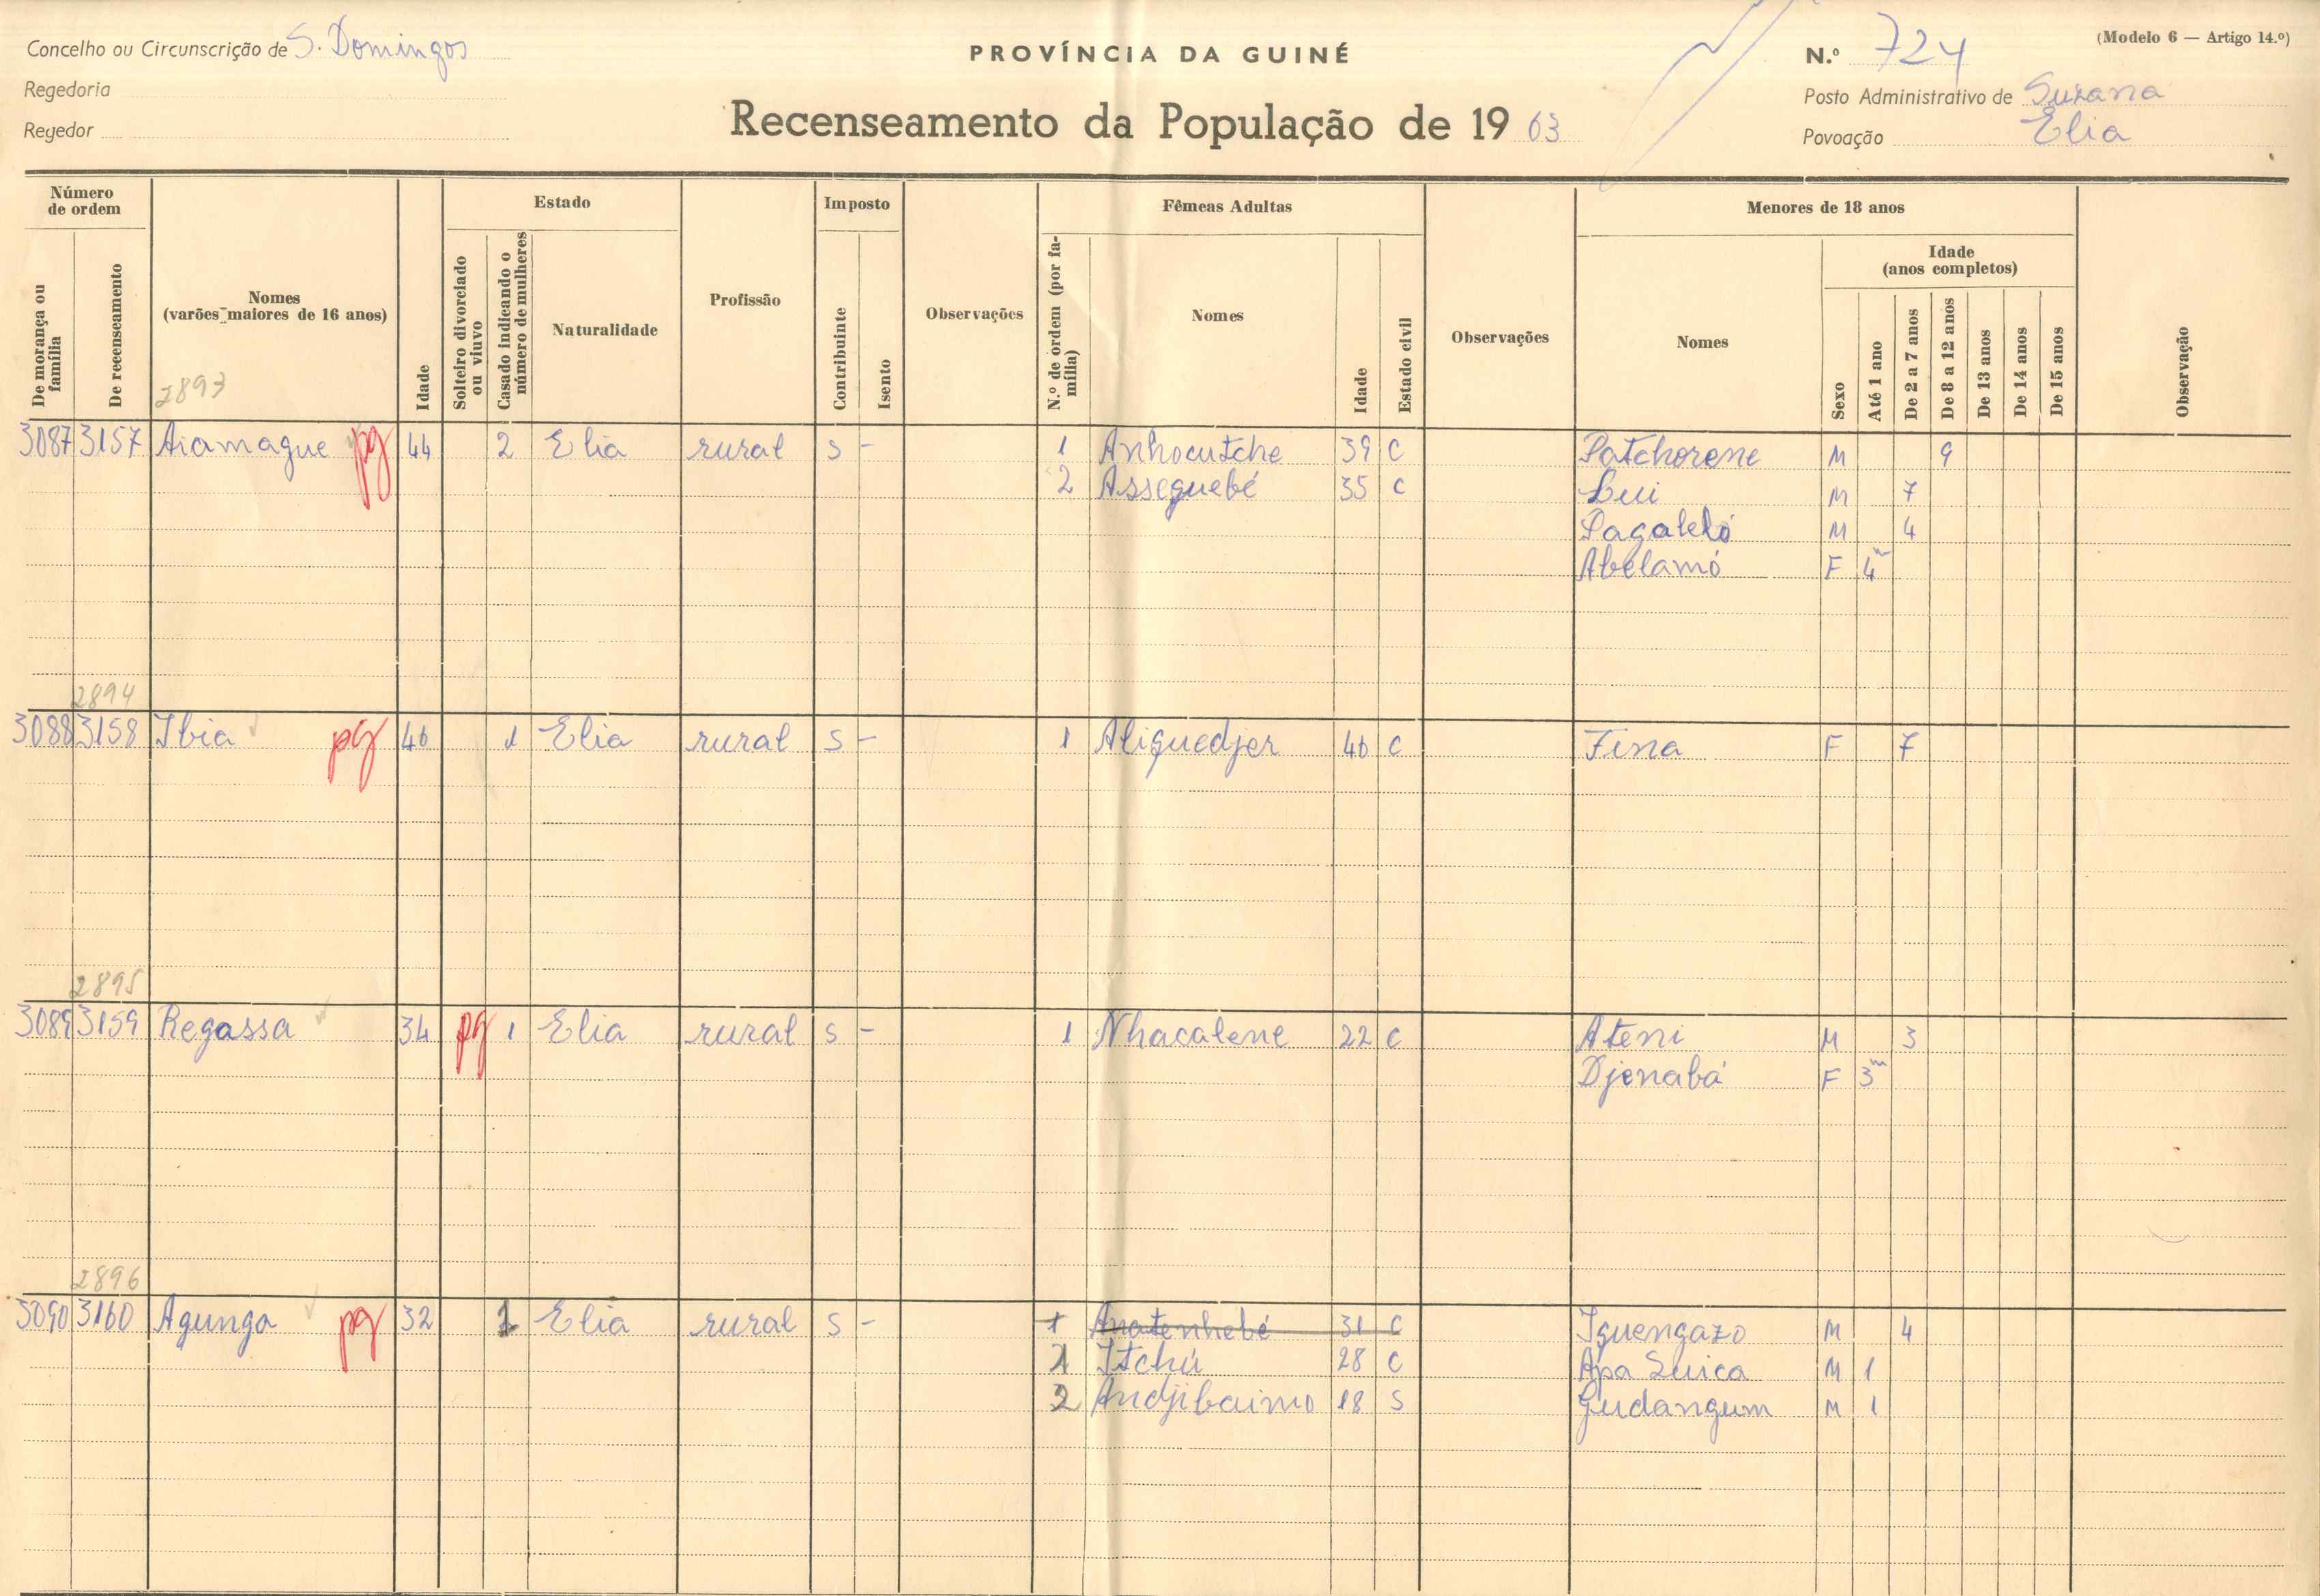 Concelho ou Circunscrição de S. Domingos
PROVÍNCIA DA GUINÉ
N.º 724
(Modelo 6 — Artigo 14.º)
Regedoria
Posto Administrativo de Suzana
Regedor
Recenseamento da População de 1963
Povoação Elia
Número de ordem
Estado
Imposto
Fêmeas Adultas
Menores de 18 anos
De morança ou família
De recenseamento
Nomes (varões maiores de 16 anos)
Idade
Solteiro divorciado ou viuvo
Casado indicando o número de mulheres
Naturalidade
Profissão
Contribuinte
Isento
Observações
N.º de ordem (por família)
Nomes
Idade
Estado civil
Observações
Nomes
Sexo
Idade (anos completos)
Até 1 ano
De 2 a 7 anos
De 8 a 12 anos
De 13 anos
De 14 anos
De 15 anos
Observação
2893
3087 3157 Aiamague pg 44 2 Elia rural s - 1 Anhocutche 39 C Patchorene M 9
2 Asseguebé 35 C Lui M 7
Pagaleló M 4
Abelamó F 4m
2894
3088 3158 Ibia pg 46 1 Elia rural s - 1 Aliquedjer 40 C Fina F 7
2895
3089 3159 Regassa 34 pg 1 Elia rural s - 1 Nhacalene 22 C Ateni M 3
Djenabá F 3m
2896
3090 3160 Agunga pg 32 1 Elia rural s - 1 Anatenhebé 31 C Iguengazo M 4
1 Itchú 28 C Apa Suica M 1
2 Andjibaimo 18 S Gudangum M 1